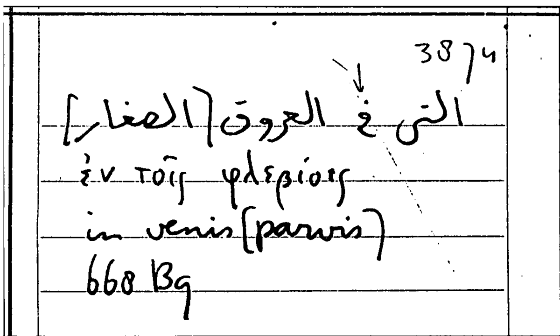 3874
التى فى العروق [الصغار]
ἐν τοῖς φλεβίοις
in venis [parvis]
668 Bq